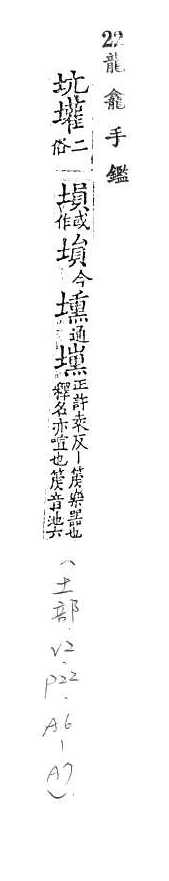 22 龍龕手鑑
二俗塤或作今壎通正許袁反｜箎樂器也釋名亦喧也箎音池六
(土部.V2.P22.A6-A7).